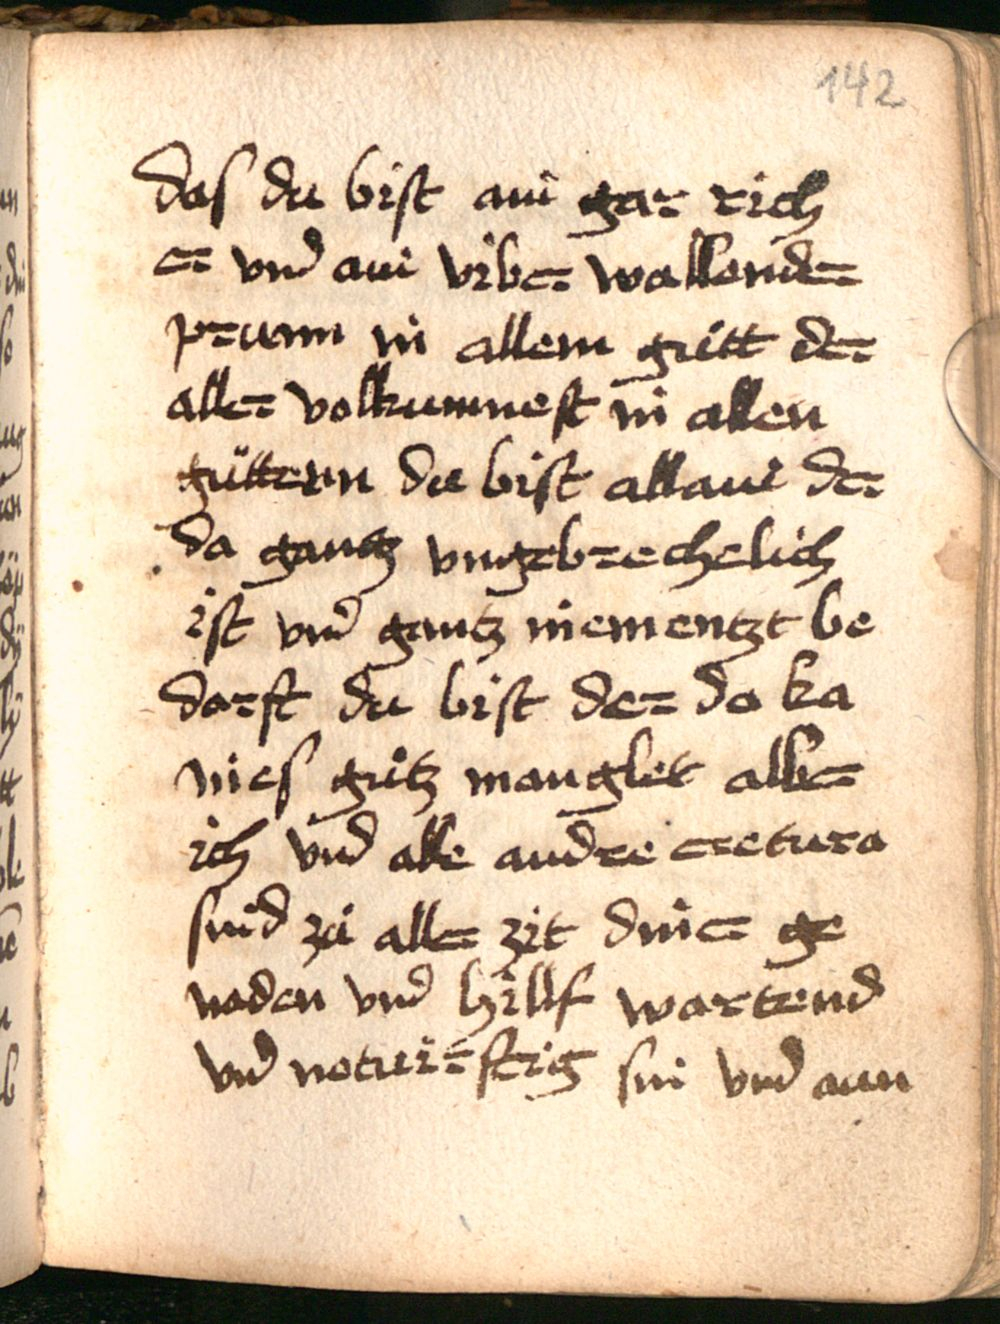 142
das du bist ain gar rich
er vnd ain vber wallender
prunn in allem gůtt der
aller volkumnest in allen
gůttern du bist allain der
da gantz vngebrechelich
ist vnd gantz niementzt be
darft du bist der da ka
nies gůtz manglet aller
ich vnd alle andre cretura
sind zů aller zit diner ge
naden vnd hillf wartend
vnd noturftig sin vnd aun